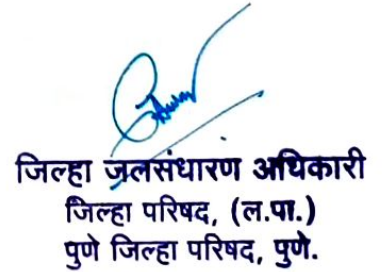 जिल्हा जलसंधारण अधिकारी
जिल्हा परिषद, (ल.पा.)
पुणे जिल्हा परिषद, पुणे.